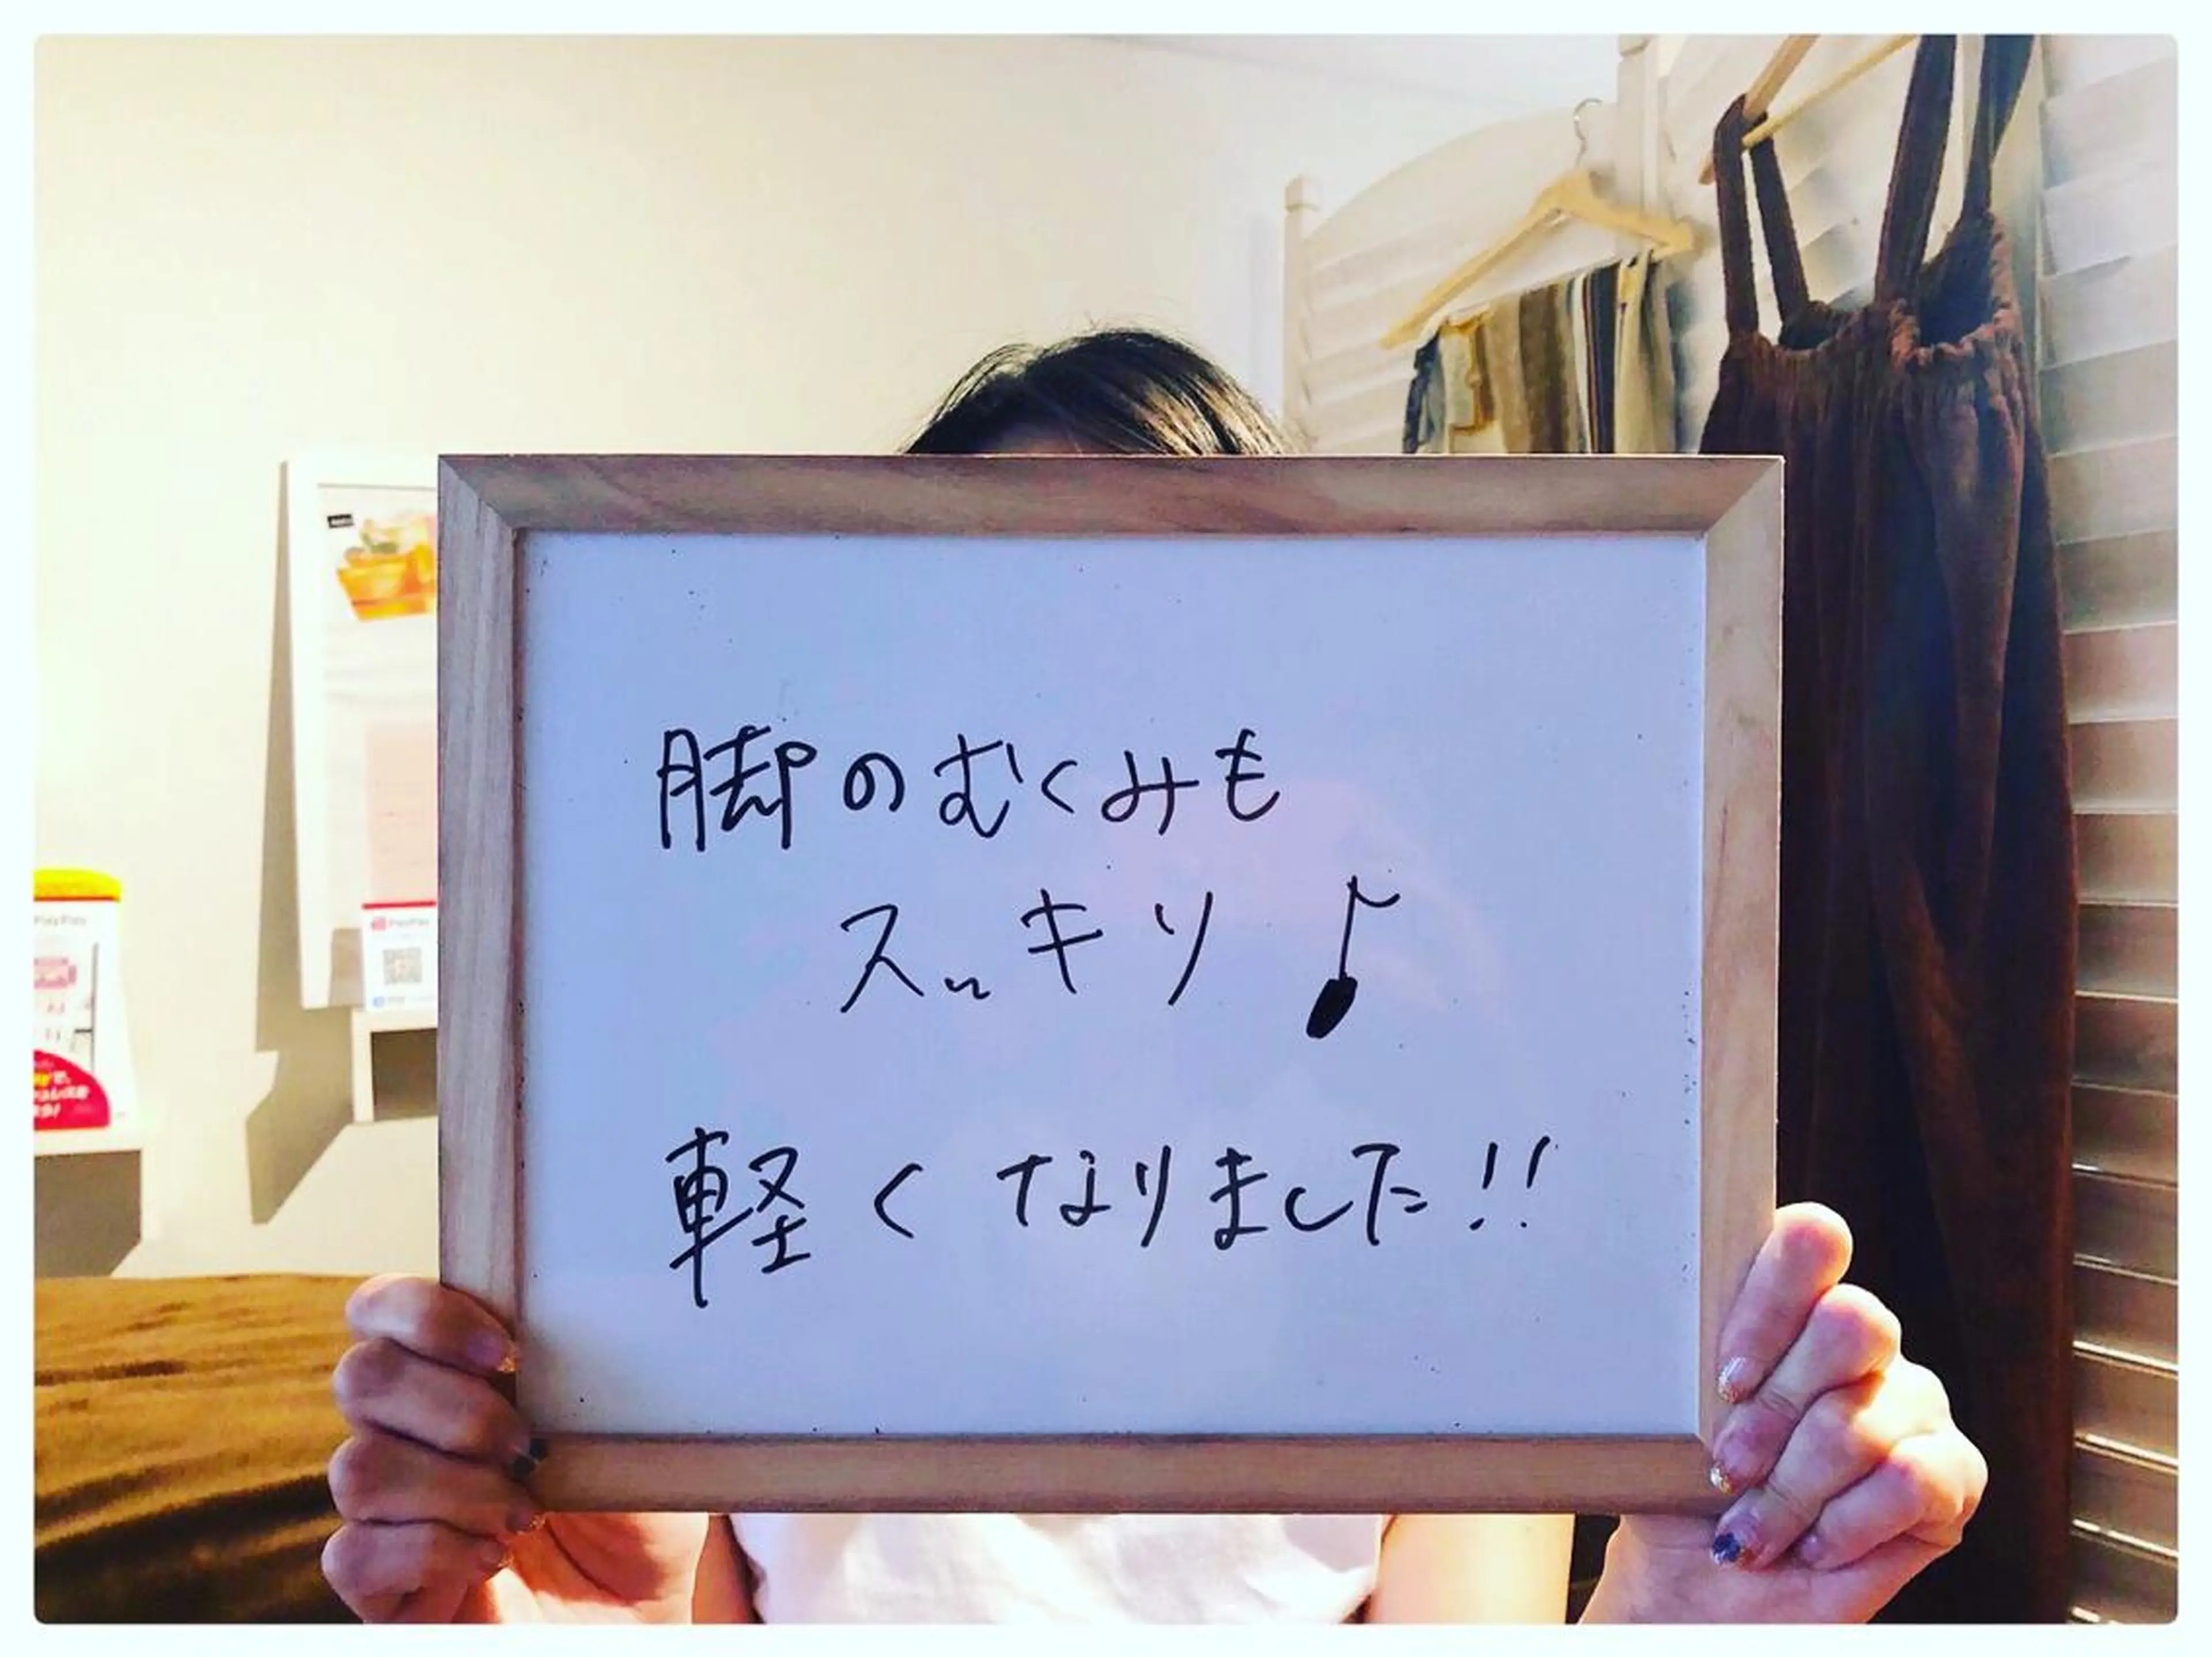 脚のむくみも
スッキリ♪
軽くなりました!!
PayPay
PayPay